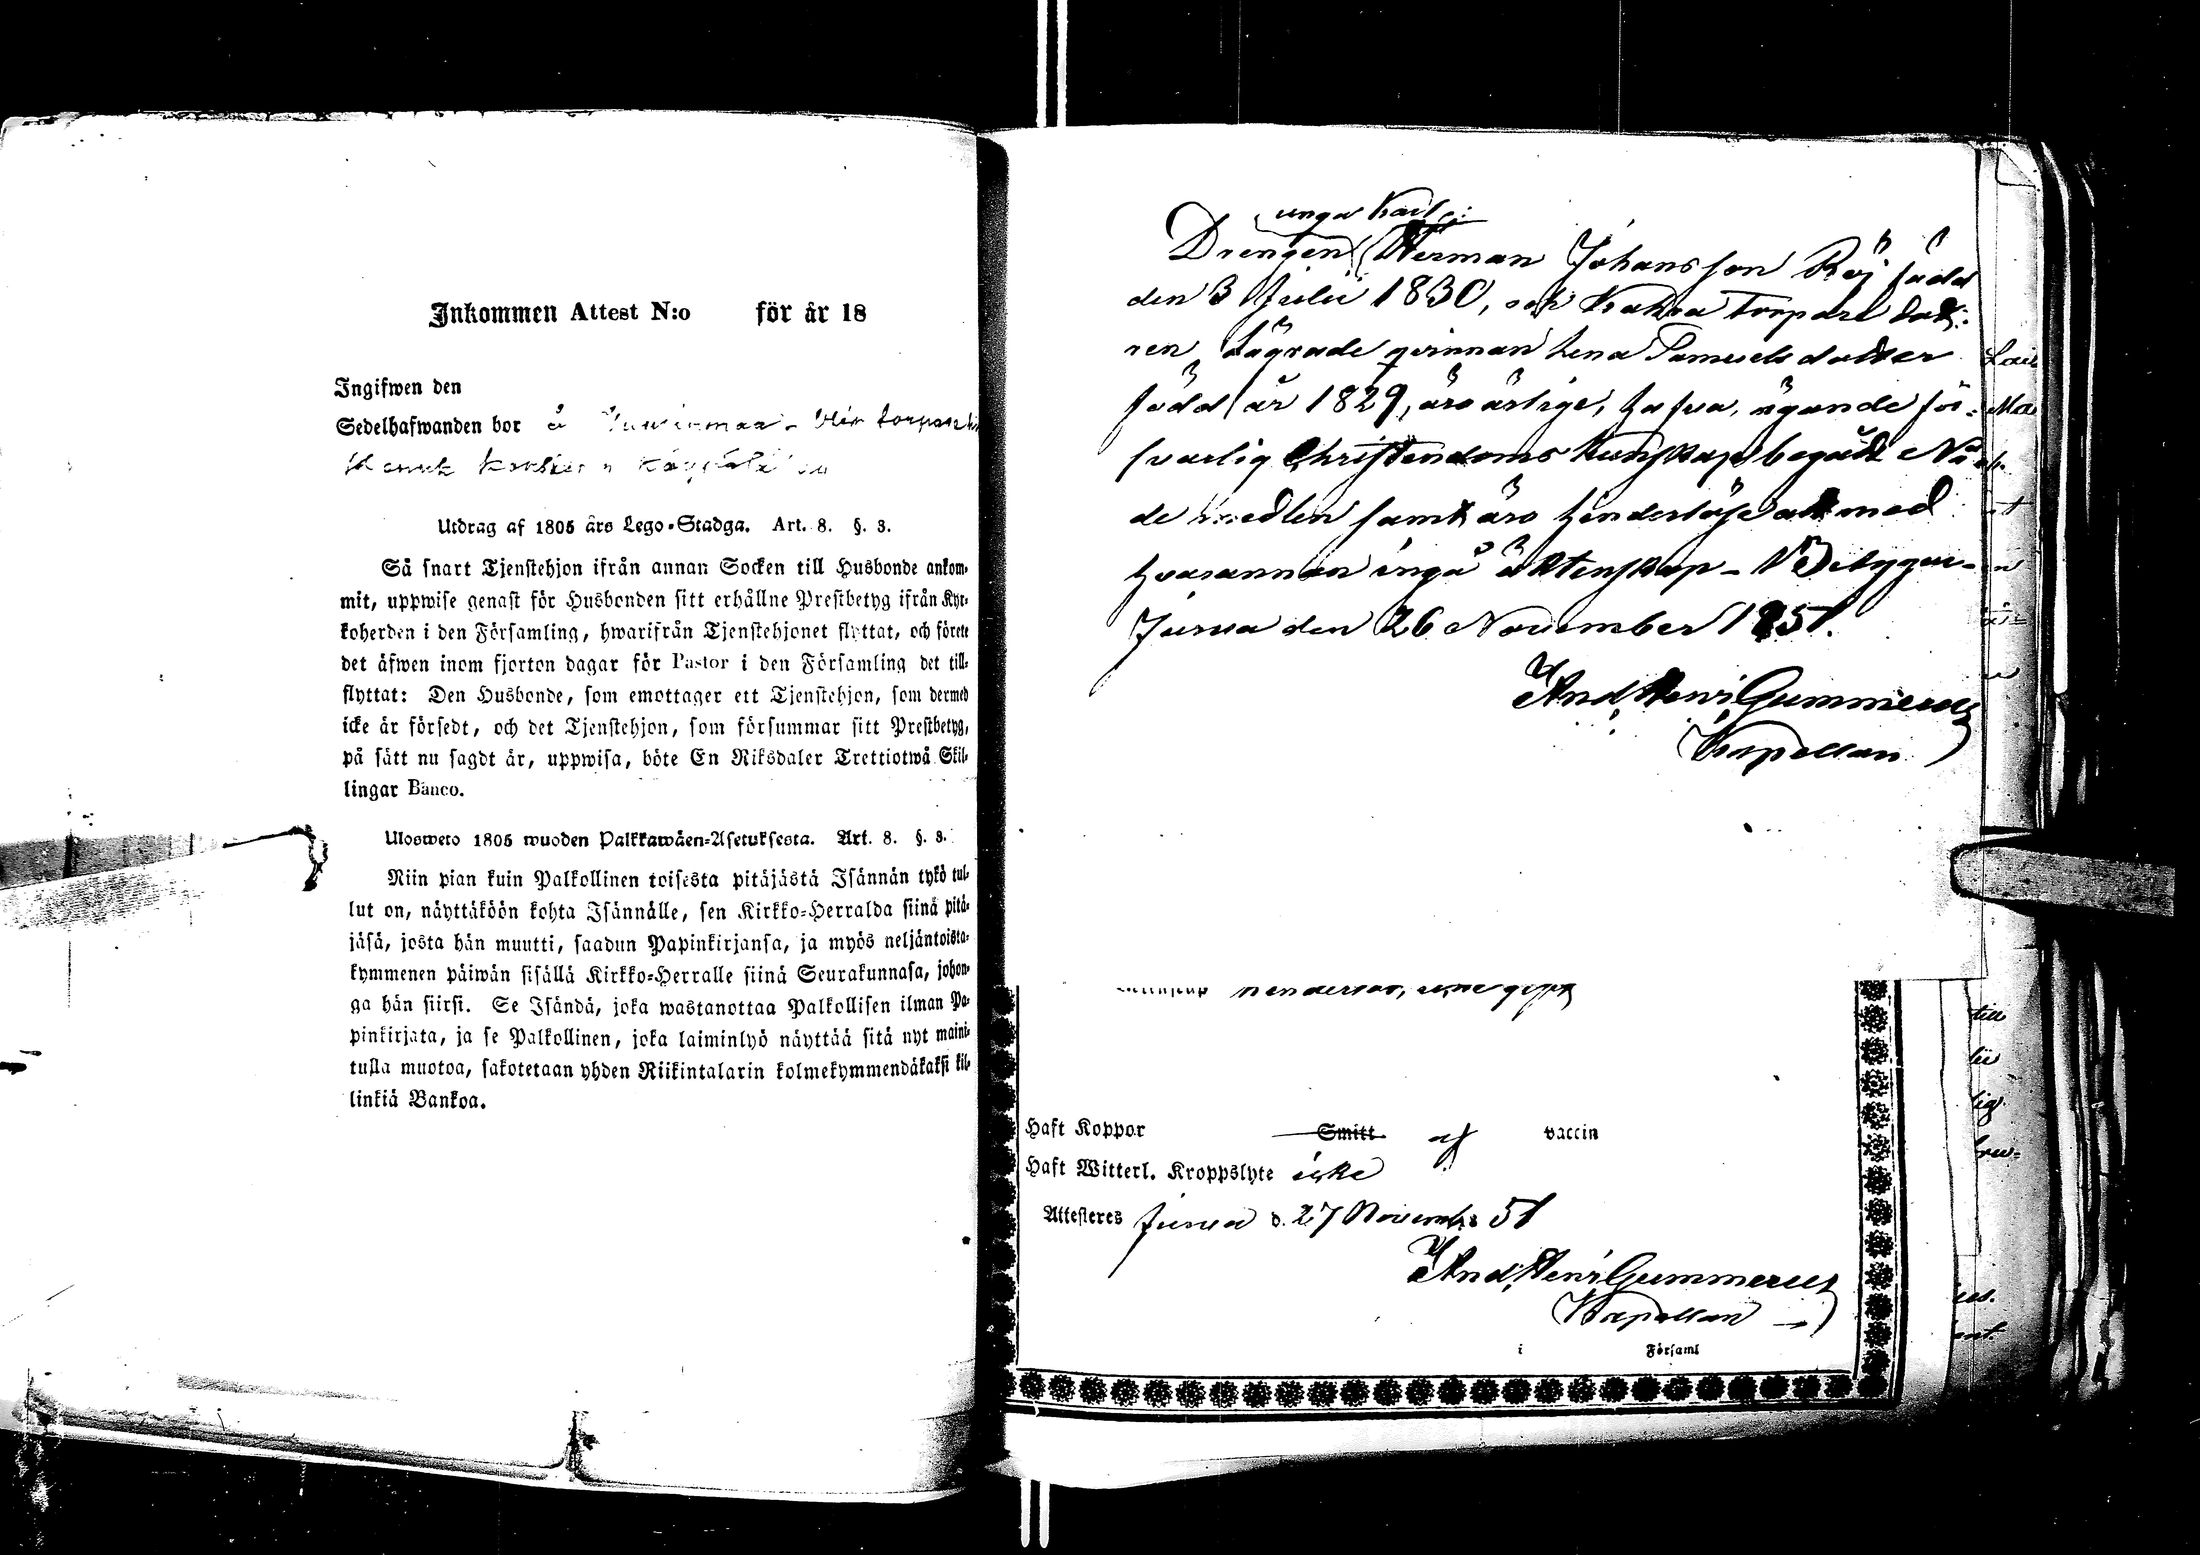 Inkommen Attest N:o för år 18
Ingifwen den
Sedelhafwanden bor å torpare
Utdrag af 1805 års Lego-Stadga. Art. 8. §. 3.
Så snart Tjenstehjon ifrån annan Socken till Husbonde ankom-
mit, uppwise genast för Husbonden sitt erhållne Prestbetyg ifrån Kyr-
koherden i den Församling, hwarifrån Tjenstehjonet flyttat, och förete
det äfwen inom fjorton dagar för Pastor i den Församling det till-
flyttat: Den Husbonde, som emottager ett Tjenstehjon, som dermed
icke är försedt, och det Tjenstehjon, som försummar sitt Prestbetyg,
på sätt nu sagdt är, uppwisa, böte En Riksdaler Trettiotwå Skil-
lingar Banco.
Ulosweto 1805 wuoden Palkkawäen-Asetuksesta. Art. 8. §. 3.
Niin pian kuin Palkollinen toisesta pitäjästä Isännän tykö tul-
lut on, näyttäköön kohta Isännälle, sen Kirkko-Herralda siinä pitä-
jäsä, josta hän muutti, saadun Papinkirjansa, ja myös neljäntoista-
kymmenen päiwän sisällä Kirkko-Herralle siinä Seurakunnasa, johon-
ga hän siirsi. Se Isändä, joka wastanottaa Palkollisen ilman Pa-
pinkirjata, ja se Palkollinen, joka laiminlyö näyttää sitä nyt maini-
tulla muotoa, sakotetaan yhden Riikintalarin kolmekymmendäkaksi kil-
linkiä Bankoa.
unga Karl
Drengen Herman Johansson Röj född
den 3 Julii 1830, och torpare dott:
ren, lägrade qvinnan Lena Samuelsdotter
född år 1829, äro ärlige, ägande för-
svarlig Christendoms kunskap, begådt Nå-
de medlen samt äro hinderlöse att med
hvarannan ingå äktenskap
Jurva den 26 November 1851.
And. Henr. Gummerus
Kapellan
ägtenskap hinderlös, icke gift
Haft Koppor Smitt af vaccin
Haft Witterl. Kroppslyte icke
Attesteres Jurva d. 27 Novemb. 51
And. Henr. Gummerus
Kapellan
i Församl